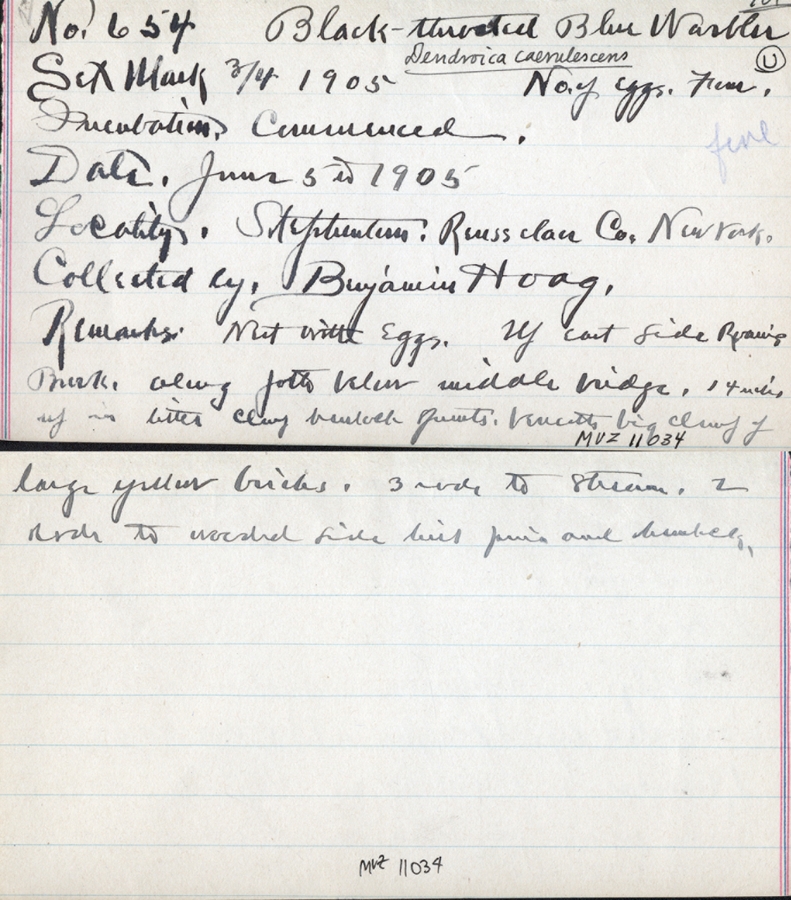 No. 654 Black-throated Blue Warbler
Dendroica caerulescens
Set Mark 3/4 1905 No. of eggs. Four.
Incubation, Commenced.
five
Date, June 5th 1905
Locality. Stephentown: Rensselaer Co. New York.
Collected by, Benjamin Hoag.
Remarks: Nest with Eggs. up east side
Brook. along path below middle bridge.
up in little clump hemlock sprouts. beneath big clump of
MVZ 11034
large yellow birches. 3 rods to stream. 2
rods to wooded side hill pine and hemlock,
MVZ 11034